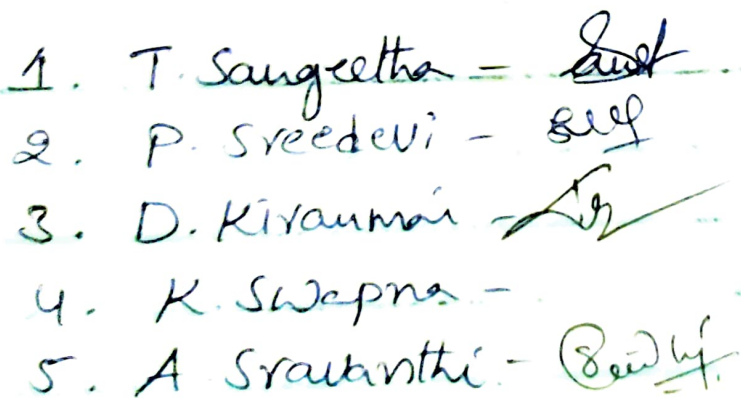 1. T. Sangeetha -
2. P. Sreedevi -
3. D. Kiranmai -
4. K. Swapna -
5. A Sravanthi -